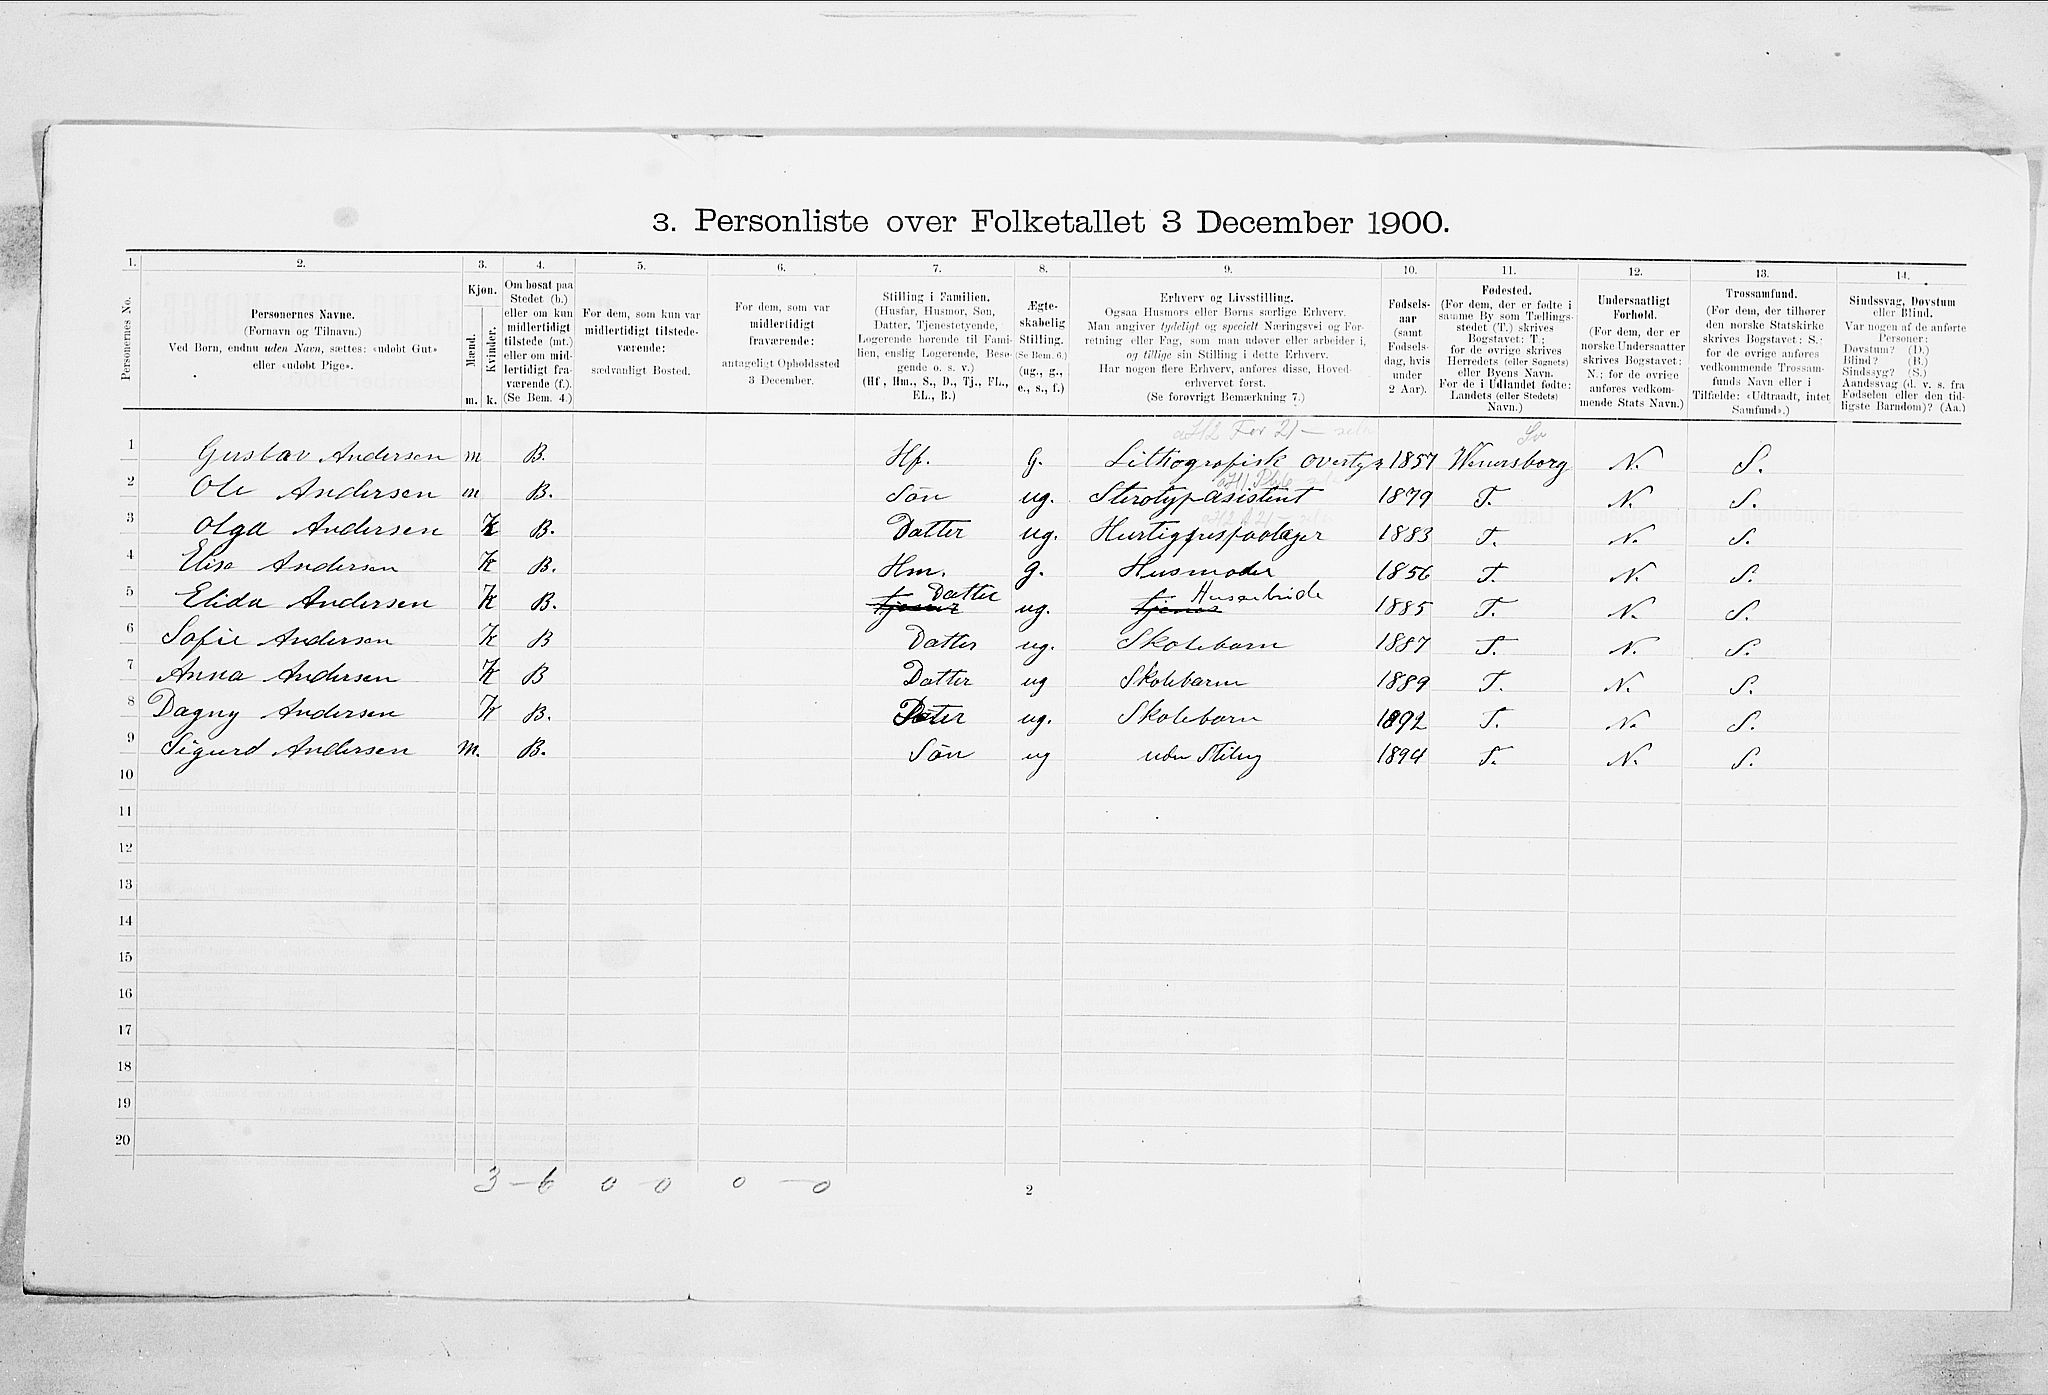 3. Personliste over Folketallet 3 December 1900.
1. 2. 3. 4. 5. 6. 7. 8. 9. 10. 11. 12. 13. 14.
Personernes No.
Personernes Navne.
(Fornavn og Tilnavn.)
Ved Børn, endnu uden Navn, sættes: «udøbt Gut»
eller «udøbt Pige».
Kjøn.
Mænd.
Kvinder.
m. k.
Om bosat paa
Stedet (b.)
eller om kun
midlertidigt
tilstede (mt.)
eller om mid-
lertidigt fra-
værende (f.).
(Se Bem. 4.)
For dem, som kun var
midlertidigt tilstede-
værende:
sædvanligt Bosted.
For dem, som var
midlertidigt
fraværende:
antageligt Opholdssted
3 December.
Stilling i Familien.
(Husfar, Husmor, Søn,
Datter, Tjenestetyende,
Logerende hørende til Fami-
lien, enslig Logerende, Besø-
gende o. s. v.)
(Hf., Hm., S., D., Tj., FL.,
EL., B.)
Ægte-
skabelig
Stilling.
(Se Bem. 6.)
(ug., g.,
e., s., f.)
Erhverv og Livsstilling.
Ogsaa Husmors eller Børns særlige Erhverv.
Man angiver tydeligt og specielt Næringsvei og For-
retning eller Fag, som man udøver eller arbeider i,
og tillige sin Stilling i dette Erhverv.
Har nogen flere Erhverv, anføres disse, Hoved-
erhvervet først.
(Se forøvrigt Bemærkning 7.)
Fødsels-
aar
(samt
Fødsels-
dag, hvis
under
2 Aar).
Fødested.
(For dem, der er fødte i
samme By som Tællings-
stedet (T.) skrives
Bogstavet: T;
for de øvrige skrives
Herredets (eller Sognets)
eller Byens Navn.
For de i Udlandet fødte:
Landets (eller Stedets)
Navn.)
Undersaatligt
Forhold.
(For dem, der er
norske Undersaatter
skrives Bogstavet:
N.; for de øvrige
anføres vedkom-
mende Stats Navn.)
Trossamfund.
(For dem, der tilhører
den norske Statskirke
skrives Bogstavet: S.;
for de øvrige anføres
vedkommende Trossam-
funds Navn eller i
Tilfælde: «Udtraadt, intet
Samfund».)
Sindssvag, Døvstum
eller Blind.
Var nogen af de anførte
Personer:
Døvstum? (D.)
Blind? (B.)
Sindssyg? (S.)
Aandssvag (d. v. s. fra
Fødselen eller den tid-
ligste Barndom)? (Aa.)
Sv
1 Gustav Andersen m B. Hf. G. Lithografisk overtyr 1857 Wenersborg N. S.
2 Ole Andersen m B. Søn ug. Sterotypasistent 1879 T. N. S.
3 Olga Andersen K B. Datter ug. Hurtigprespaalæger 1883 T. N. S.
4 Elise Andersen K B. Hm. g. Husmoder 1856 T. N. S.
5 Elida Andersen K B. Datter ug. tjenes 1885 T. N. S.
6 Sofie Andersen K B Datter ug. Skolebarn 1887 T. N. S.
7 Anna Andersen K B Datter ug Skolebarn 1889 T. N. S.
8 Dagny Andersen K B. Datter ug. Skolebarn 1892 T. N. S.
9 Sigurd Andersen m. B. Søn ug uden Stiling 1894 T. N. S.
10
11
12
13
14
15
16
17
18
19
20
3 - 6 0 - 0 0 - 0
2